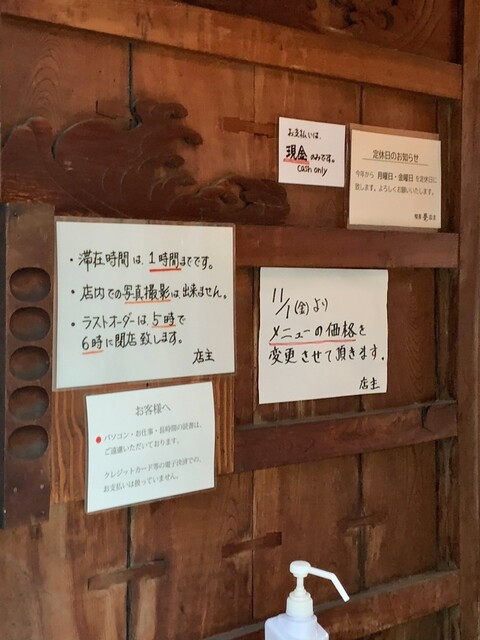 お支払いは、
現金のみです。
cash only
定休日のお知らせ
今年から 月曜日・金曜日 を定休日に
致します。よろしくお願いいたします。
・滞在時間は、1時間までです。
・店内での写真撮影は、出来ません。
・ラストオーダーは、5時で
6時に閉店致します。
店主
11/1(金)より
メニューの価格を
変更させて頂きます。
店主
お客様へ
●パソコン・お仕事・長時間の読書は、
ご遠慮いただいております。
クレジットカード等の電子決済での、
お支払いは扱っていません。